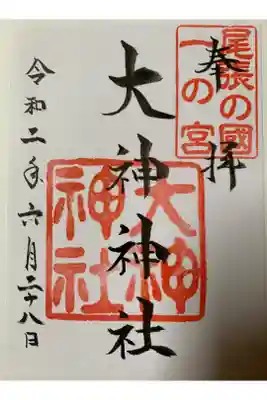 奉拝
尾張の國
一の宮
大神神社
大神
神社
令和二年六月二十八日